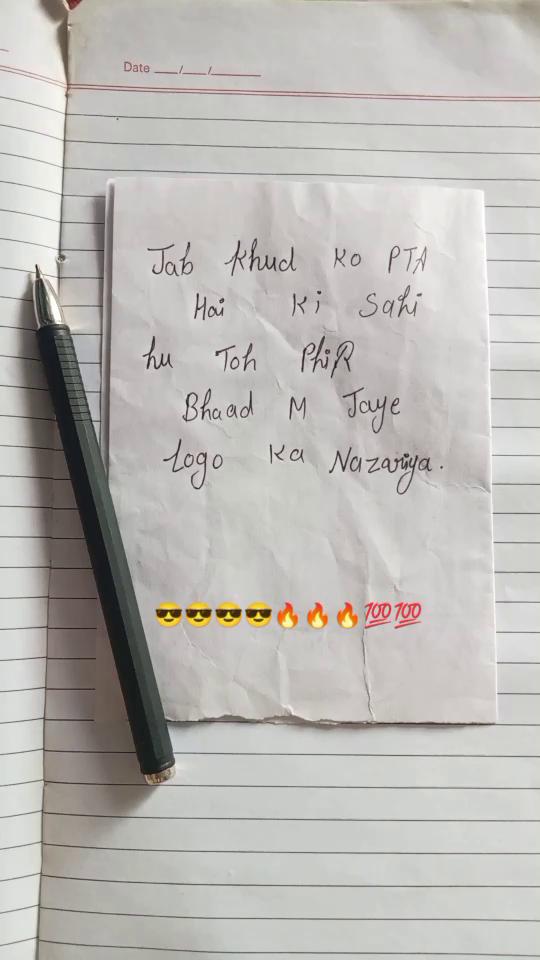 Date __/__/____
Jab khud ko PTA
Hai Ki Sahi
hu Toh PhiR
Bhaad M Jaye
Logo Ka Nazariya.
😎😎😎😎🔥🔥🔥💯💯